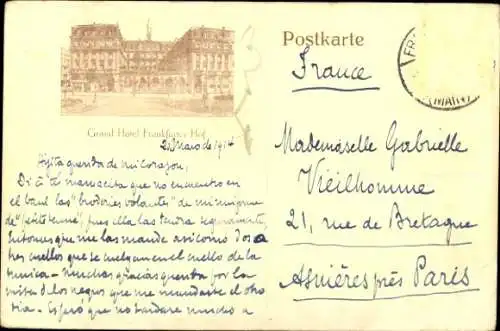 Postkarte
France
Grand Hotel Frankfurter Hof
2 Marso de 1914
Hijita querida de mi corazon,
Di á tú mamacita que no encuentro en
el baul las "broderies volante" de mi
de "petite tenue", pues ella las tendra seguramente,
Entonces que me las mande asi como dos o
tres cuellos que se cuelgan en el cuello de la
tunica - Muchas gracias querida por la
de los negros que me mandaste el otro
dia - Espero que no tardare mucho a
Mademoiselle Gabrielle
Vieilhomme
21, rue de Bretagne
Asnières près Paris
FR
(MAIN)